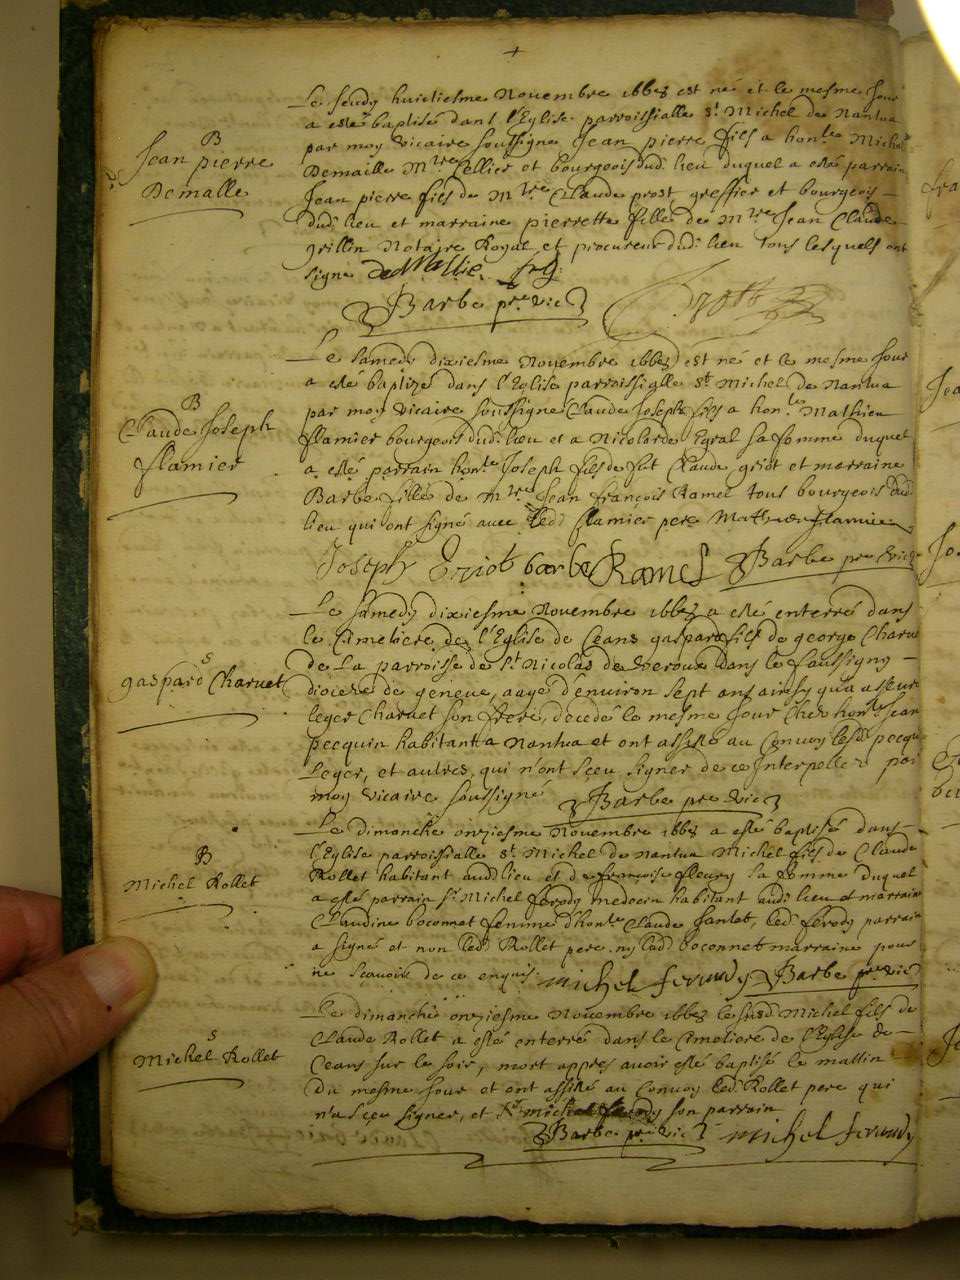 +
Le Jeudy huictiesme Novembre 1668 est né et le mesme Jour
a esté baptisé dans l'Eglise parroissialle St Michel de Nantua
B
Jean pierre
Demaille
par moy vicaire soussigné Jean pierre fils a honble Michel
Demaille Mtre sellier et bourgeois dud. lieu duquel a esté parrain
Jean pierre fils de Mtre Claude prost greffier et bourgeois
dud. lieu et marraine pierrette fille de Mtre Jean Claude
grillin Notaire Royal et procureur dud. lieu tous lesquels ont
signé deMallie
Barbe pre vic
Prost
Le samedy dixiesme Novembre 1668 est né et le mesme Jour
a esté baptizé dans l'Eglise parroissialle St Michel de Nantua
B
Claude Joseph
flamier
par moy vicaire soussigné Claude Joseph fils a honble Mathieu
flamier bourgeois dud. lieu et a Nicolarde Egral sa femme duquel
a esté parrain honble Joseph fils de fut Claude griot et marraine
Barbe fille de mtre Jean françois Ramel tous bourgeois dud.
lieu qui ont signé avec led. flamier pere Mathieu flamier
Joseph Griot barbe Ramel Barbe pre vic
Le samedy dixiesme Novembre 1668 a esté enterré dans
le Cimetiere de l'Eglise de Ceans gaspard fils de george Charvet
S
gaspard Charvet
de la parroisse de St Nicolas de veroux dans le faussigny
diocese de geneve, aagé d'environ sept ans ainsy qu'a asseuré
leger Charvet son frere, decedé le mesme Jour chez honble Jean
pecquin habitant a Nantua et ont assisté au Convoy lesd. pecquin
Leger, et autres, qui n'ont sceu signer de ce Interpellez par
moy vicaire soussigné Barbe pre vic
Le dimanche onziesme Novembre 1668 a esté baptisé dans
B
Michel Rollet
l'Eglise parroissialle St Michel de Nantua Michel fils de Claude
Rollet habitant aud. lieu et de françoise fleury sa femme duquel
a esté parrain Sr Michel ferody medecin habitant aud. lieu et marraine
Claudine boconnet femme d'honble Claude santet, led. ferody parrain
a signé et non led. Rollet pere ny lad. boconnet marraine pour
ne sçavoir de ce enquis. michel feroudy Barbe pre vic
S
Michel Rollet
Le dimanche onziesme Novembre 1668 le susd. Michel fils de
Claude Rollet a esté enterré dans le Cimetiere de l'Eglise de
Ceans sur le soir, mort appres avoir esté baptisé le mattin
du mesme Jour et ont assisté au Convoy led. Rollet pere qui
n'a sceu signer, et Sr michel son parrain
Barbe pre vic michel feroudy